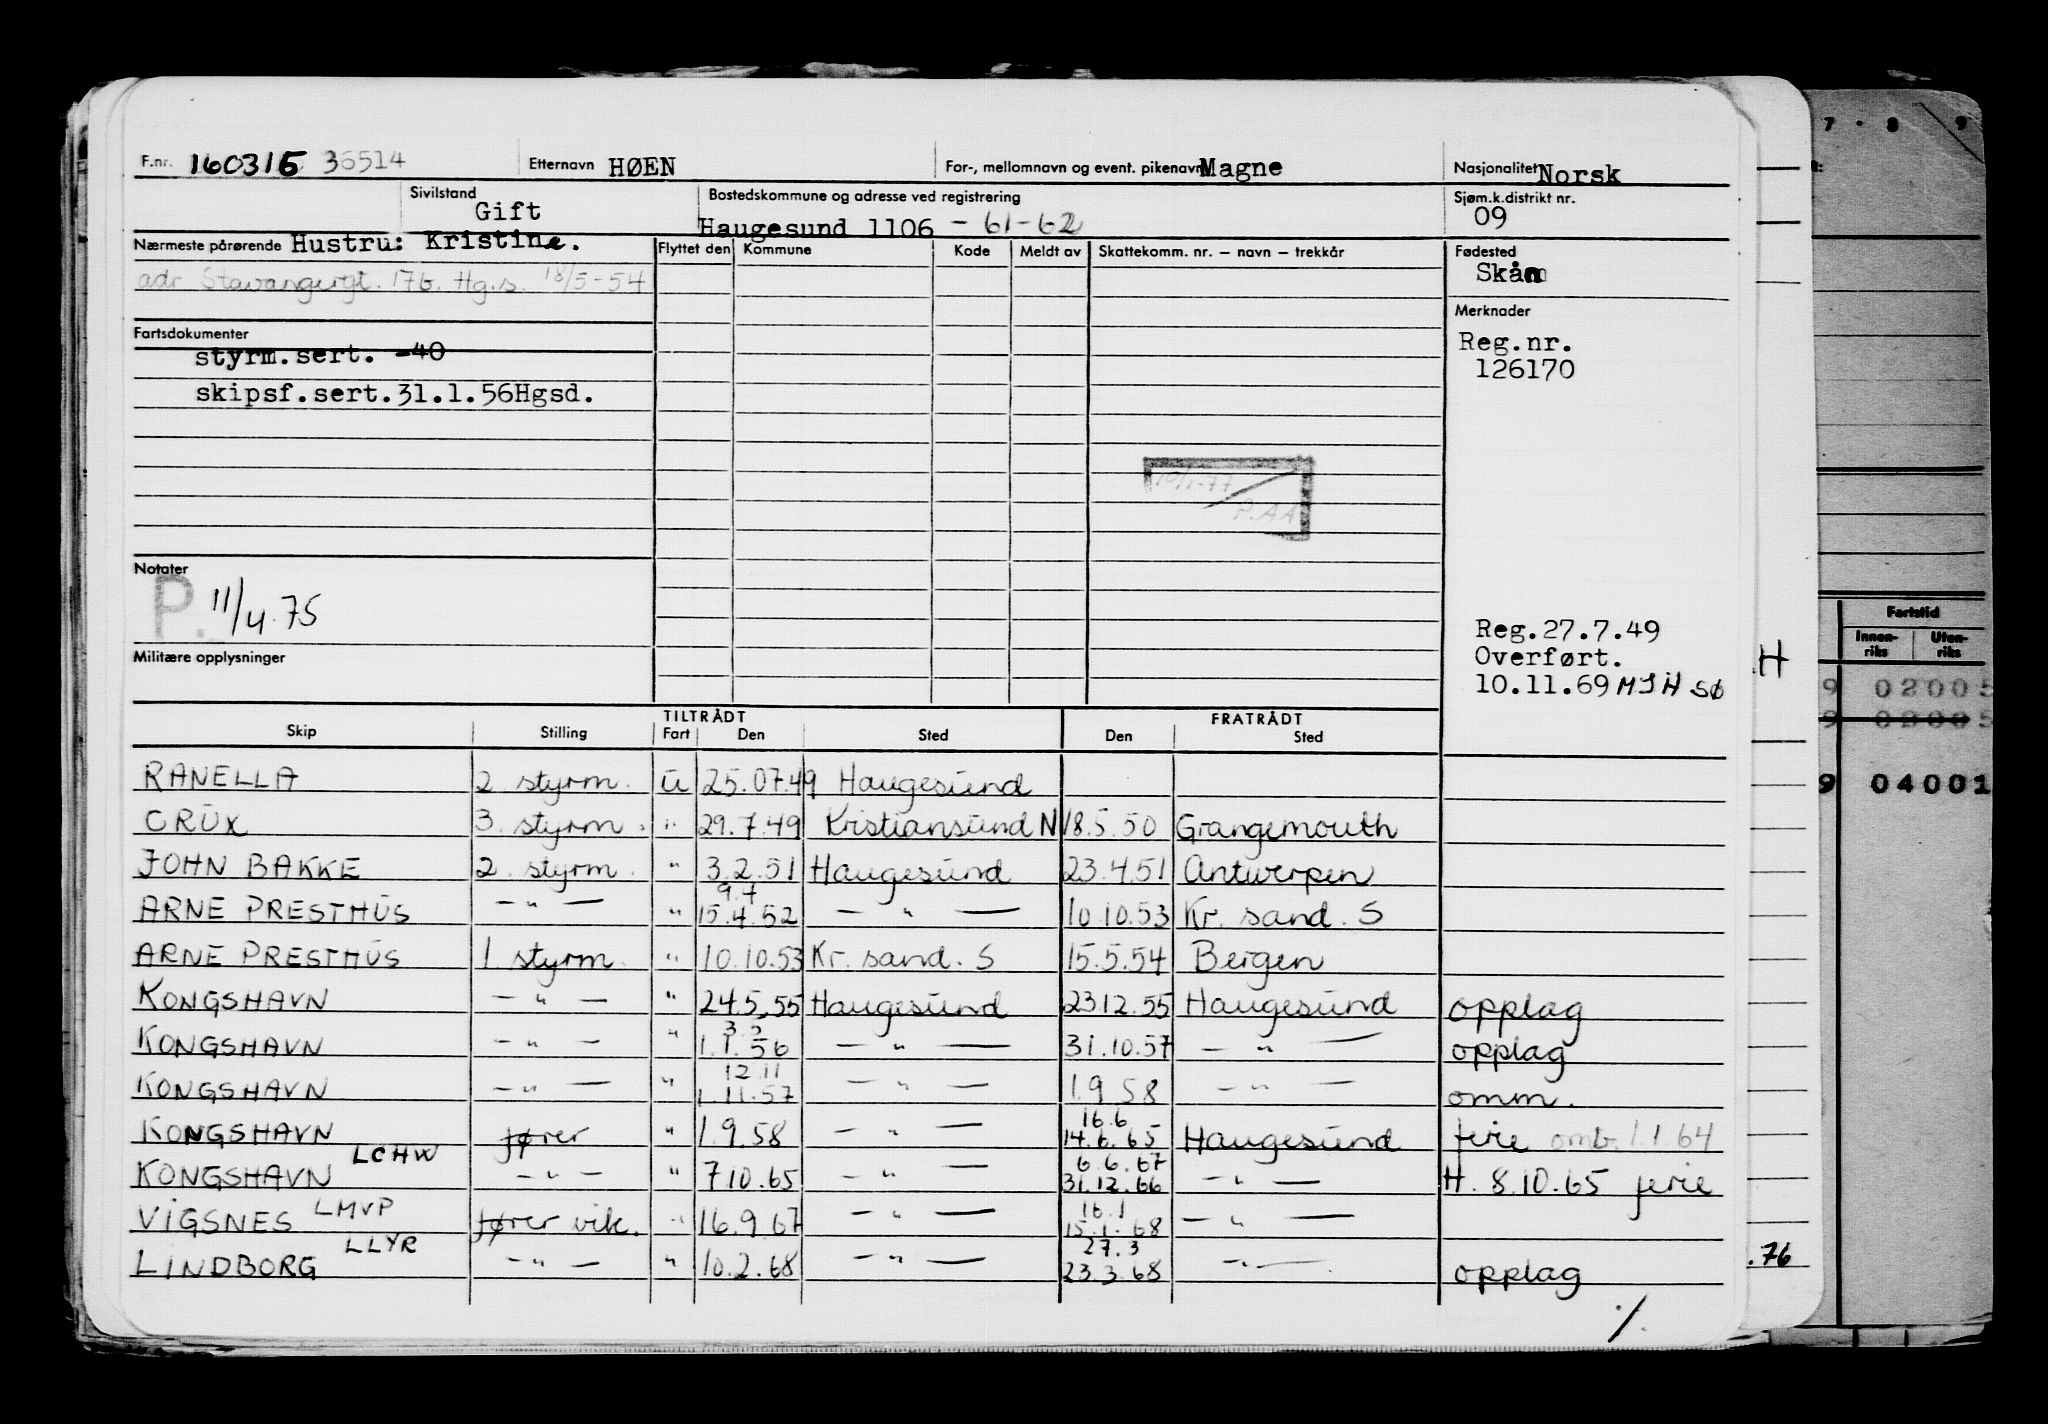 F.nr. 160315 36514 Etternavn HØEN For-, mellomnavn og event. pikenavn Magne Nasjonalitet Norsk
Sivilstand Gift Bostedskommune og adresse ved registrering Haugesund 1106 - 61-62 Sjøm.k.distrikt nr. 09
Nærmeste pårørende Hustru: Kristine. Flyttet den Kommune Kode Meldt av Skattekomm. nr. - navn - trekkår Fødested
adr Stavangergt. 176. Hg.s. 18/5-54 Skån
Fartsdokumenter Merknader
styrm.sert. -40 Reg.nr.
126170
skipsf.sert.31.1.56Hgsd.
10/1-77
P.AA
Notater
P. 11/4.75
Reg.27.7.49
Militære opplysninger Overført.
10.11.69 MJH SØ
TILTRÅDT FRATRÅDT
Skip Stilling Fart Den Sted Den Sted
RANELLA 2 styrm. u 25.07.49 Haugesund
CRUX 3. styrm. " 29.7.49 Kristiansund N 18.5.50 Grangemouth
JOHN BAKKE 2. styrm. " 3.2.51 Haugesund 23.4.51 Antwerpen
9.7
ARNE PRESTHUS — " — " 15.4.52 — " — 10.10.53 Kr. sand. S
ARNE PRESTHUS 1. styrm. " 10.10.53 Kr. sand. S 15.5.54 Bergen
KONGSHAVN — " — " 24.5.55 Haugesund 23.12.55 Haugesund opplag
3.5
KONGSHAVN — " — " 1.1.56 — " — 31.10.57 — " — opplag
12.11
KONGSHAVN — " — " 1.11.57 — " — 1.9.58 — " — omm.
16.6
KONGSHAVN fører " 1.9.58 — " — 14.6.65 Haugesund ferie omb. 1.1.64
LCHW 6.6.67
KONGSHAVN — " — " 7.10.65 — " — 31.12.66 — " — H. 8.10.65 ferie
LMVP 16.1
VIGSNES fører vik. " 16.9.67 — " — 15.1.68 — " —
LLYR 27.3
LINDBORG — " — " 10.2.68 — " — 23.3.68 — " — opplag
%
7 · 8 9
Fartstid
Innen-riks Uten-riks
H
9 02005
9 02005
9 04001
.76